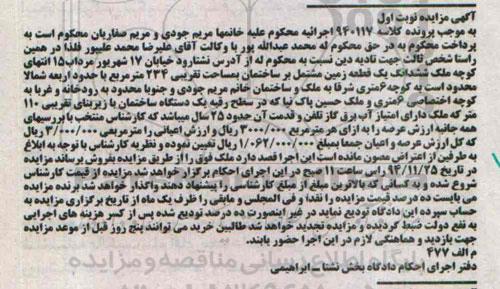 آگهی مزایده نوبت اول
به موجب پرونده کلاسه ۹۴۰۱۱۷ اجرائیه محکوم علیه خانمها مریم جودی و مریم صفاریان محکوم است به
پرداخت محکوم به در حق محکوم له محمد عبدالله پور با وکالت آقای علیرضا محمد علیپور فلذا در همین
راستا شخص ثالث جهت تادیه دین نسبت به محکوم له از آدرس نشتارود خیابان ۱۷ شهریور مرداب ۱۵ انتهای
کوچه ملک ششدانگ یک قطعه زمین مشتمل بر ساختمان بمساحت تقریبی ۲۳۴ مترمربع با حدود اربعه شمالا
محدود است به کوچه ۶متری شرقا به ملک و ساختمان خانم مریم جودی و جنوبا محدود به رودخانه و غربا به
کوچه اختصاصی ۶متری و ملک حسین پاک نیا که در سطح رقبه یک دستگاه ساختمان با زیربنای تقریبی ۱۱۰
متر که ملک دارای امتیاز آب برق گاز تلفن و قدمت آن حدود ۲۵ سال میباشد که کارشناس منتخب با بررسیهای
همه جانبه ارزش عرصه را به ازای هر مترمربع ۳۰۰۰/۰۰۰ ریال و ارزش اعیانی را مترمربعی ۳/۰۰۰/۰۰۰ ریال
که کل ارزش عرصه و اعیان جمعا بمبلغ ۱/۰۶۲/۰۰۰/۰۰۰ ریال تعیین نموده و نظریه کارشناس با توجه به ابلاغ
به طرفین از اعتراض مصون مانده است این اجرا قصد دارد ملک فوق را از طریق مزایده بفروش برساند مزایده
در تاریخ ۹۴/۱۱/۲۵ راس ساعت ۱۱ صبح در این اجرای احکام برگزار خواهد شد مزایده از قیمت کارشناس
شروع شده و به کسانی که بالاترین مبلغ از مبلغ کارشناسی را پیشنهاد دهند واگذار خواهد شد برنده مزایده
می بایست ده درصد قیمت مزایده را نقدا و فی المجلس و مابقی را ظرف یک ماه از تاریخ برگزاری مزایده به
حساب سپرده این دادگاه تودیع نماید در غیر اینصورت ده درصد تودیع شده پس از کسر هزینه های اجرایی
به نفع دولت ضبط گردیده و مزایده تجدید خواهد شد طالبین خرید می توانند پنج روز قبل از موعد مزایده
جهت بازدید و هماهنگی لازم در این اجرا حضور یابند.
م الف ۴۷۷
دفتر اجرای احکام دادگاه بخش نشتا ـ ابراهیمی
پایگاه اطلاع رسانی مناقصه و مزایده